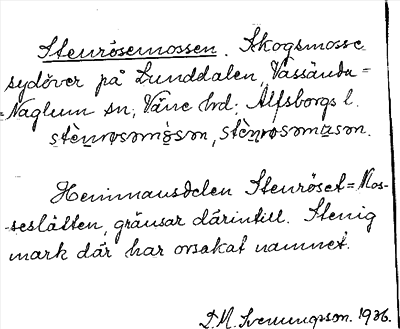 Stenrösemossen. Skogsmosse
sydöver på Lunddalen, Vassända=
=Naglum sn, Väne hd; Älfsborgs l.
stènrøsəmòsən, stènrøsəmɑsən.
Hemmansdelen Stenröset=Mos-
-seslätten, gränsar därintill. Stenig
mark där har orsakat namnet.
D.M. Svenungsson. 1926.